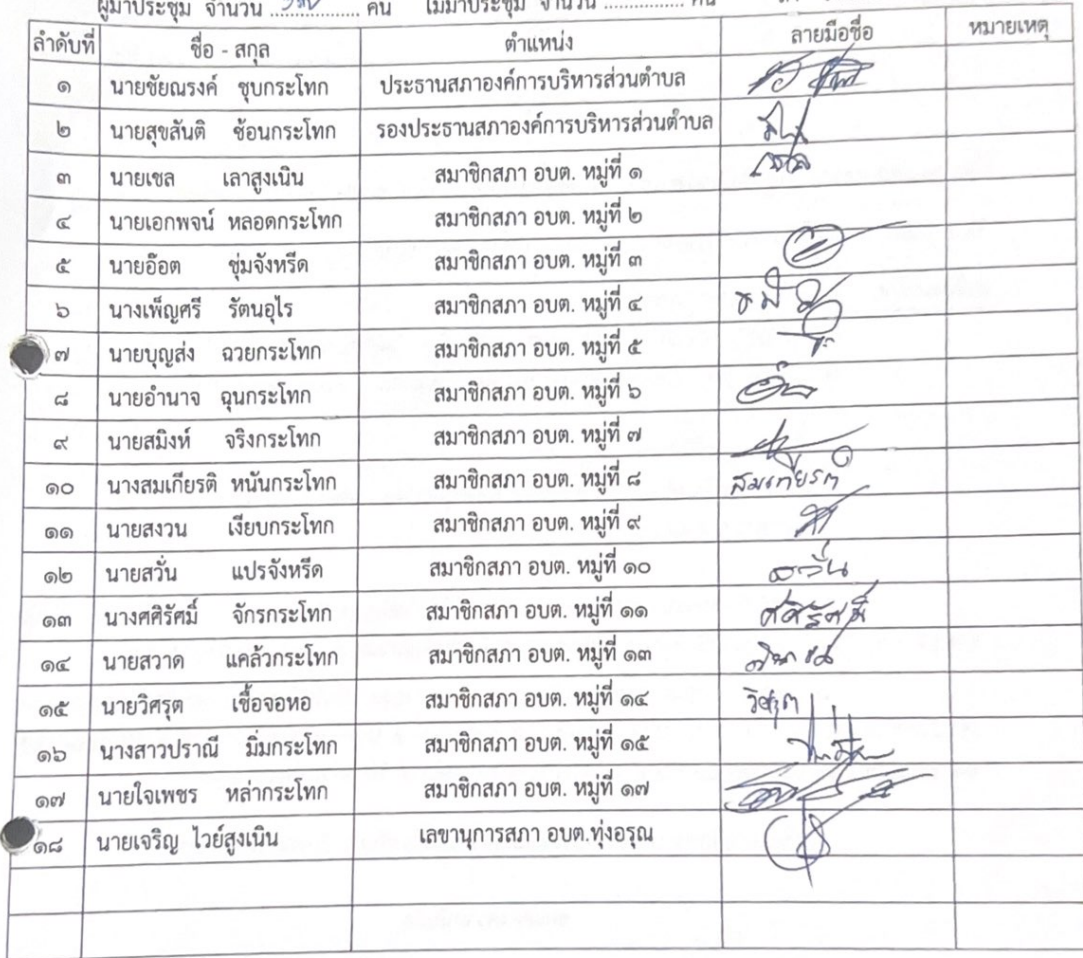 ผู้มาประชุม จำนวน ................. คน ไม่มาประชุม จำนวน ............... คน
ลำดับที่ ชื่อ - สกุล ตำแหน่ง ลายมือชื่อ หมายเหตุ
๑ นายชัยณรงค์ ชุบกระโทก ประธานสภาองค์การบริหารส่วนตำบล
๒ นายสุขสันติ ซ้อนกระโทก รองประธานสภาองค์การบริหารส่วนตำบล
๓ นายเชล เลาสูงเนิน สมาชิกสภา อบต. หมู่ที่ ๑
๔ นายเอกพจน์ หลอดกระโทก สมาชิกสภา อบต. หมู่ที่ ๒
๕ นายอ๊อต ชุ่มจังหรีด สมาชิกสภา อบต. หมู่ที่ ๓
๖ นางเพ็ญศรี รัตนอุไร สมาชิกสภา อบต. หมู่ที่ ๔
๗ นายบุญส่ง ฉวยกระโทก สมาชิกสภา อบต. หมู่ที่ ๕
๘ นายอำนาจ ฉุนกระโทก สมาชิกสภา อบต. หมู่ที่ ๖
๙ นายสมิงห์ จริงกระโทก สมาชิกสภา อบต. หมู่ที่ ๗
๑๐ นางสมเกียรติ หนันกระโทก สมาชิกสภา อบต. หมู่ที่ ๘ สมเกียรติ
๑๑ นายสงวน เงียบกระโทก สมาชิกสภา อบต. หมู่ที่ ๙
๑๒ นายสวั่น แปรจังหรีด สมาชิกสภา อบต. หมู่ที่ ๑๐ สวั่น
๑๓ นางศศิรัศมิ์ จักรกระโทก สมาชิกสภา อบต. หมู่ที่ ๑๑ ศศิรัศมิ์
๑๔ นายสวาด แคล้วกระโทก สมาชิกสภา อบต. หมู่ที่ ๑๓
๑๕ นายวิศรุต เชื้อจอหอ สมาชิกสภา อบต. หมู่ที่ ๑๔ วิศรุต
๑๖ นางสาวปราณี มิ่มกระโทก สมาชิกสภา อบต. หมู่ที่ ๑๕
๑๗ นายใจเพชร หล่ากระโทก สมาชิกสภา อบต. หมู่ที่ ๑๗
๑๘ นายเจริญ ไวย์สูงเนิน เลขานุการสภา อบต.ทุ่งอรุณ